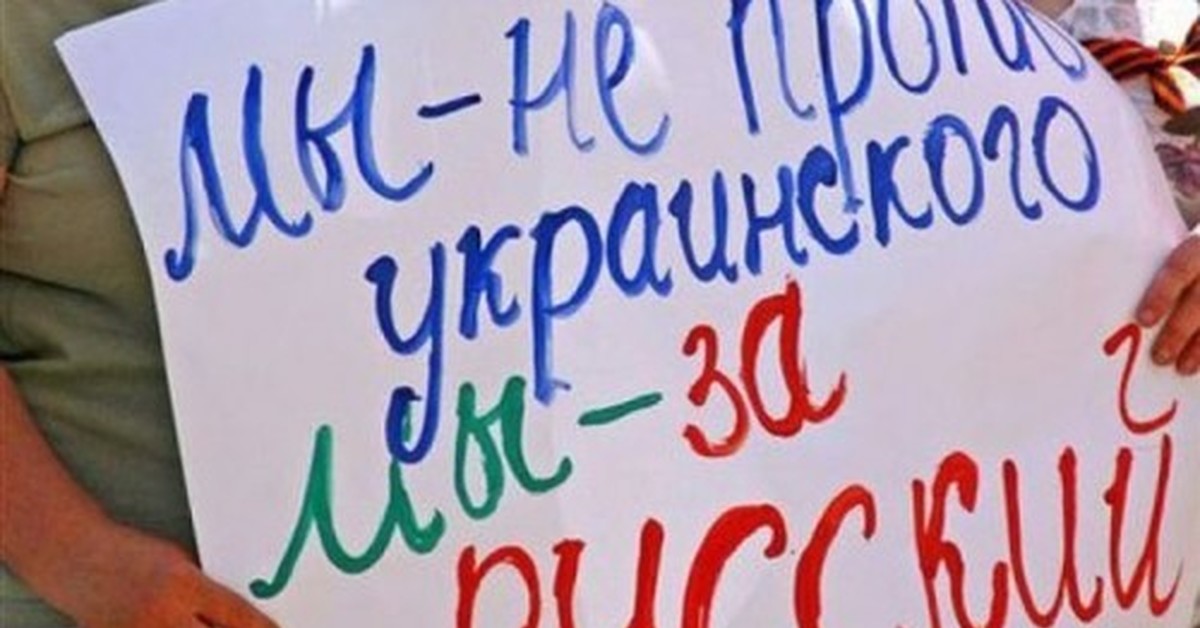 Мы-не против
украинского
Мы-за
русский